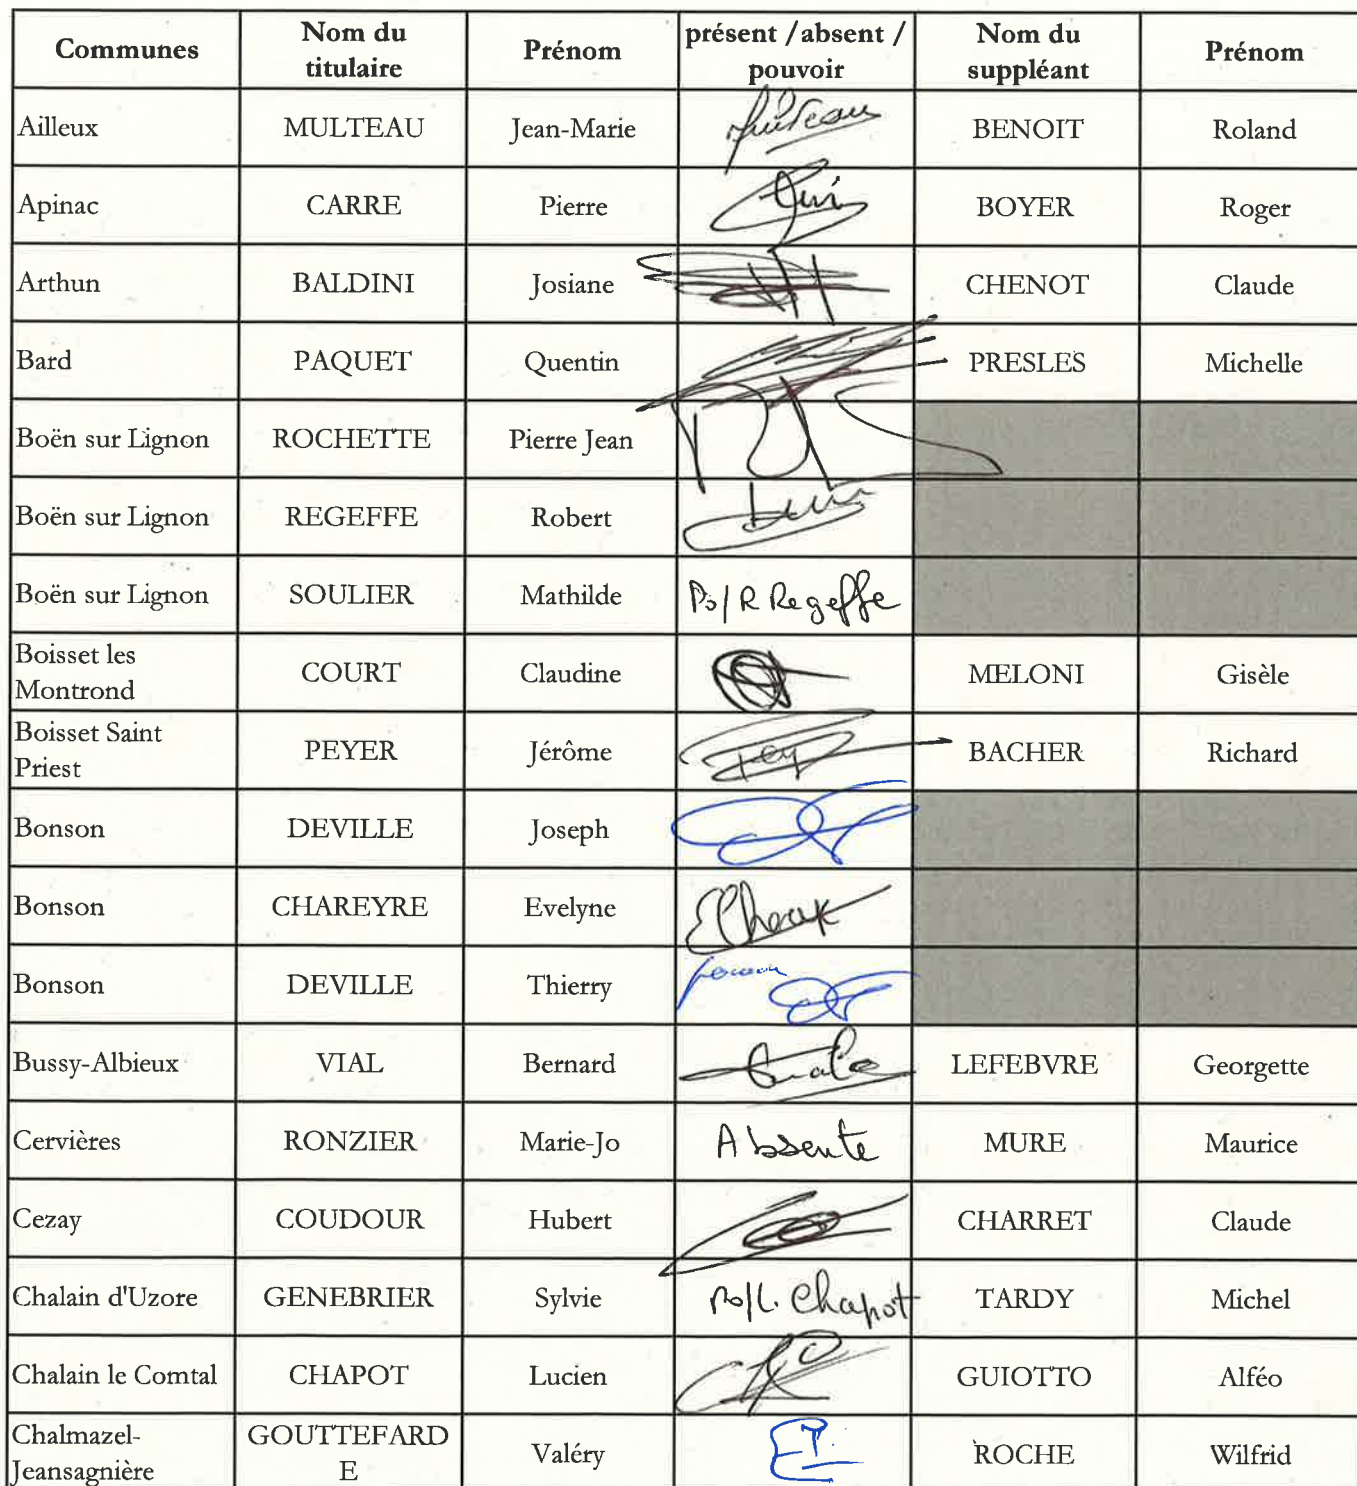 Communes Nom du titulaire Prénom présent /absent / pouvoir Nom du suppléant Prénom
Ailleux MULTEAU Jean-Marie BENOIT Roland
Apinac CARRE Pierre BOYER Roger
Arthun BALDINI Josiane CHENOT Claude
Bard PAQUET Quentin PRESLES Michelle
Boën sur Lignon ROCHETTE Pierre Jean
Boën sur Lignon REGEFFE Robert
Boën sur Lignon SOULIER Mathilde Po/R Regeffe
Boisset les Montrond COURT Claudine MELONI Gisèle
Boisset Saint Priest PEYER Jérôme BACHER Richard
Bonson DEVILLE Joseph
Bonson CHAREYRE Evelyne
Bonson DEVILLE Thierry
Bussy-Albieux VIAL Bernard LEFEBVRE Georgette
Cervières RONZIER Marie-Jo Absente MURE Maurice
Cezay COUDOUR Hubert CHARRET Claude
Chalain d'Uzore GENEBRIER Sylvie Po/L. Chapot TARDY Michel
Chalain le Comtal CHAPOT Lucien GUIOTTO Alféo
Chalmazel-Jeansagnière GOUTTEFARDE Valéry ROCHE Wilfrid